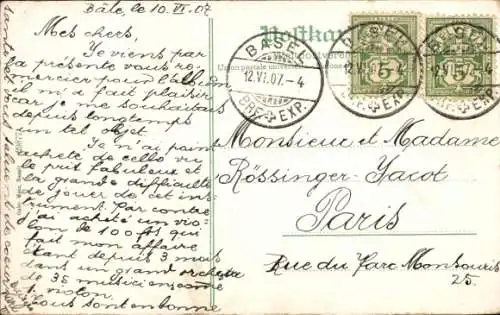 Bâle, le 10. VI. 07
Mes chers,
Je viens par
la présente vous re-
mercier pour l'album
il m'a fait plaisir
car je me souhaitais
depuis longtemps
un tel objet.
Je n'ai point
acheté de cello vu
le prix fabuleux et
la grande difficulté
de jouer de cet ins-
trument. Par contre
j'ai acheté un vio-
lon de 100 frs qui
fait mon affaire
étant depuis 3 mois
dans un grand orchestre
de 35 musiciens comme
violon.
Vous sont en bonne
Postkarte
BASEL
12.VI.07.-4
BRF. EXP.
BASEL
12.VI.07.-4
BRF. EXP.
BASEL
12.VI.07.-4
BRF. EXP.
5
5
Monsieur et Madame
Rössinger-Jacot
Paris
Rue du Parc Montsouris
25.